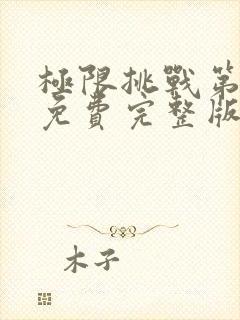 極限挑戰第
免費完整版
木子